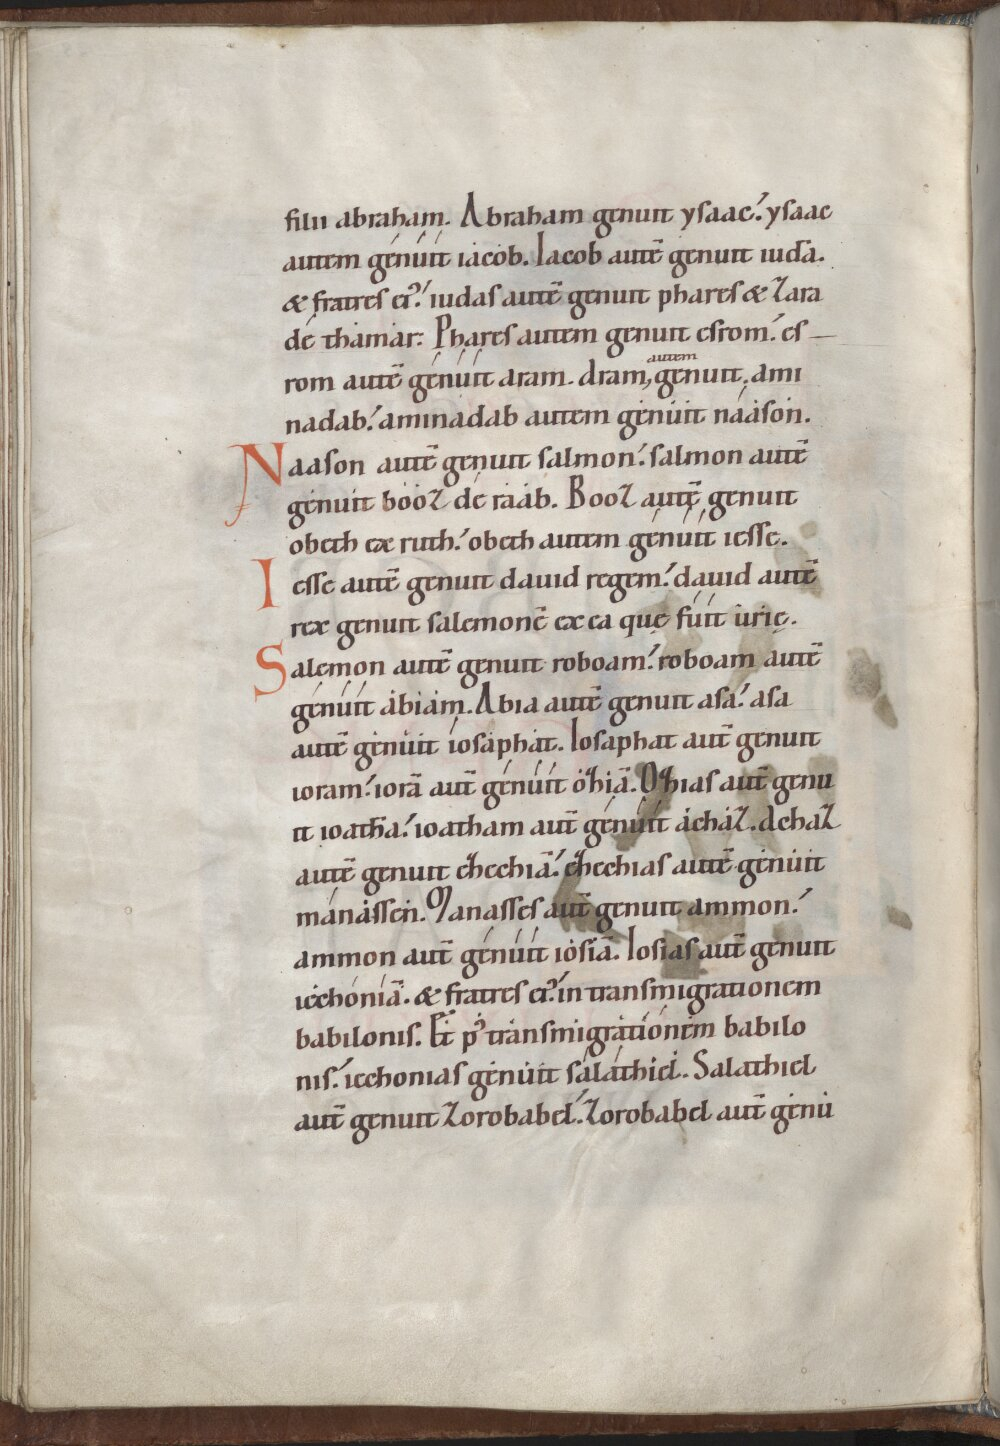 filii abraham. Abraham genuit ysaac. ysaac
autem genuit iacob. Iacob autē genuit iudā.
& fratres ei᷒. iudas autē genuit phares & zara
de thamar. Phares autem genuit esrom. es
rom autē genuit aram. Aram autem genuit ami
nadab. aminadab autem genuit naason.
Naason autē genuit salmon. salmon autē
genuit booz de raab. Booz autē genuit
obeth ex ruth. obeth autem genuit iesse.
Iesse autē genuit dauid regem. dauid autē
rex genuit salemonē ex ea quę fuit urię.
Salemon autē genuit roboam. roboam autē
genuit abiam. Abia autē genuit asa. asa
autē genuit iosaphat. Iosaphat aut̄ genuit
ioram. iorā aut̄ genuit oziā. Ozias aut̄ genu
it ioathā. ioatham aut̄ genuit achaz. Achaz
autē genuit ezechiā. ezechias autē genuit
manassen. Manasses aut̄ genuit ammon.
ammon aut̄ genuit iosiā. Iosias aut̄ genuit
iechoniā. & fratres ei᷒. in transmigrationem
babilonis. Et p᷒ transmigrationem babilo
nis. iechonias genuit salathiel. Salathiel
aut̄ genuit zorobabel. Zorobabel aut̄ genu